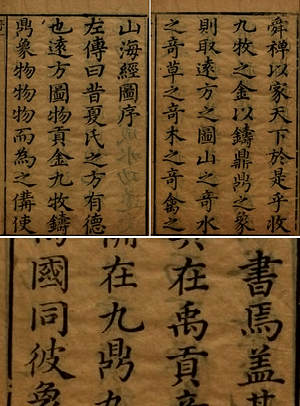 山海經圖序
左傳曰昔夏氏之方有德
也遠方圖物貢金九牧鑄
鼎象物物物而為之備使
舜禪以家天下於是乎收
九牧之金以鑄鼎鼎之象
則取遠方之圖山之奇水
之奇草之奇木之奇禽之
書焉蓋其
在禹貢奇
備在九鼎九
國同彼象